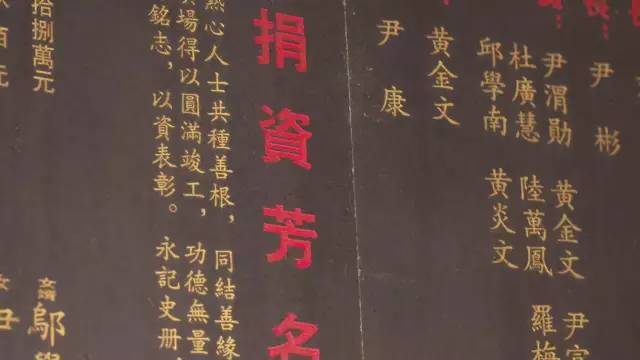 尹 彬
尹渭勛 黃金文 尹
杜廣慧 陸萬鳳 羅梅
邱學南 黃炎文
黃金文
尹 康
捐資芳名
熱心人士共種善根，同結善緣
場得以圓滿竣工，功德無量
銘志，以資表彰。永記史册
拾捌萬元 鄔
佰元